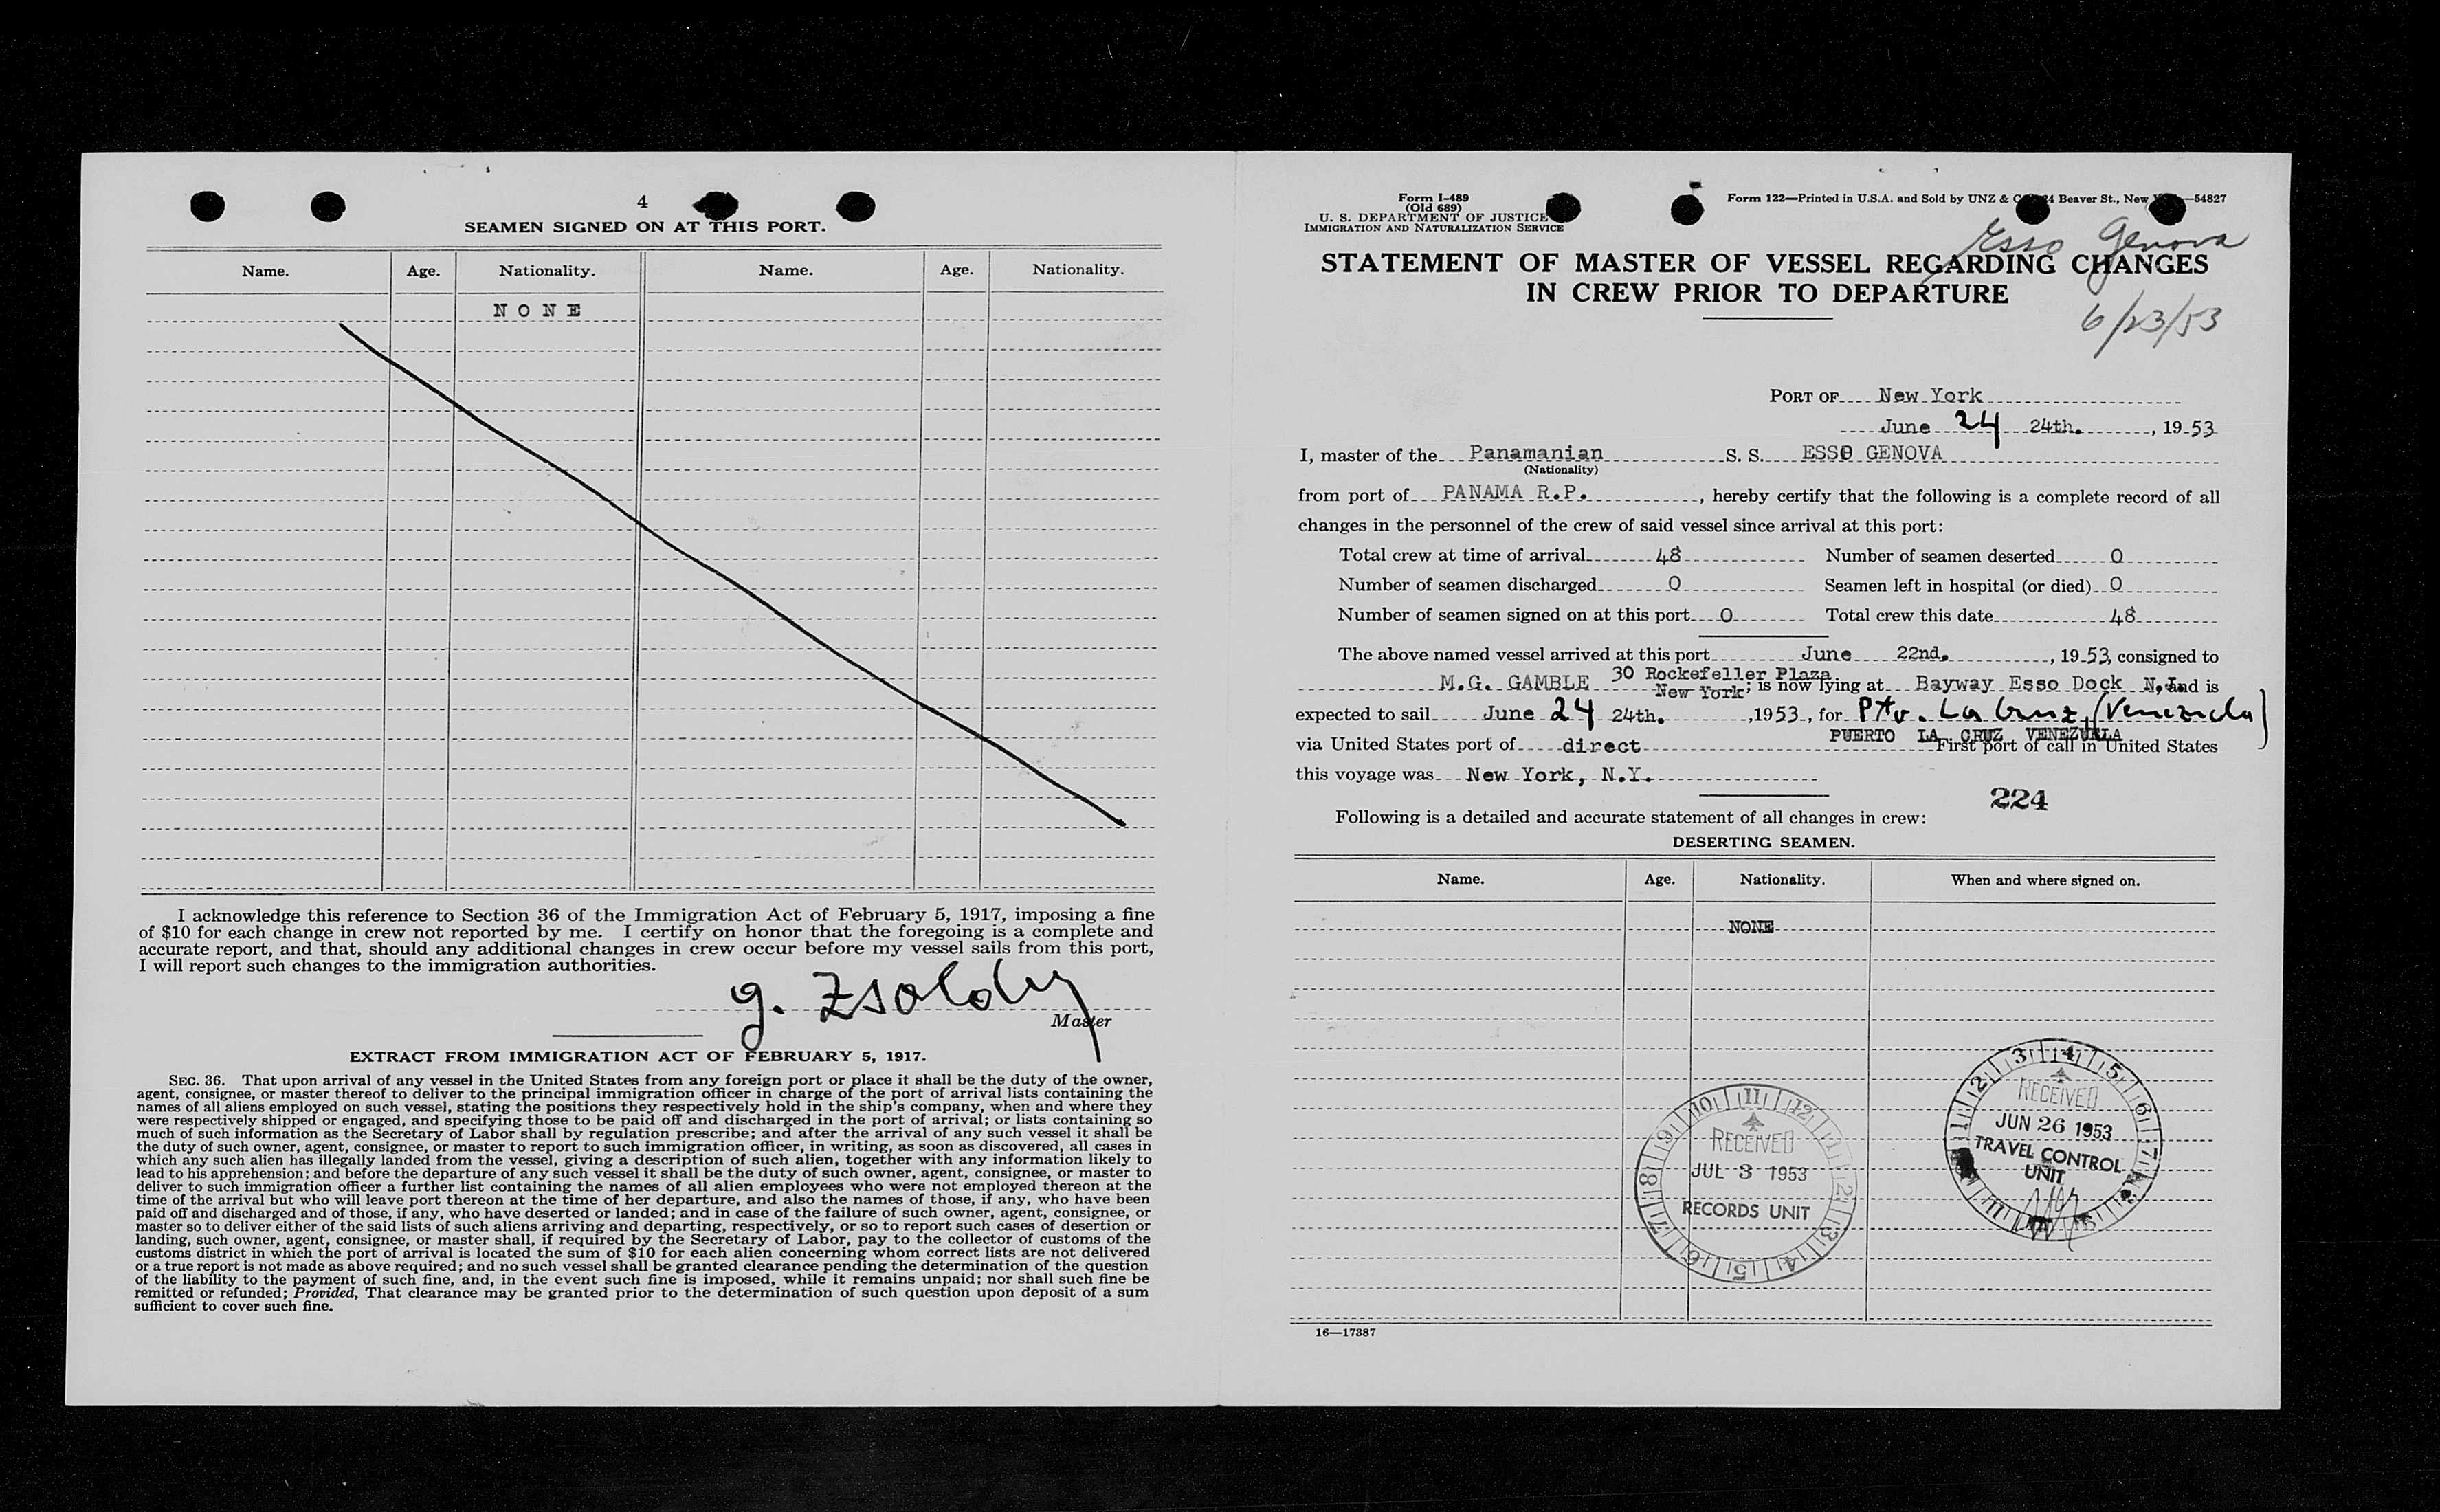 4
SEAMEN SIGNED ON AT THIS PORT.
Name. Age. Nationality. Name. Age. Nationality.
NONE
I acknowledge this reference to Section 36 of the Immigration Act of February 5, 1917, imposing a fine
of $10 for each change in crew not reported by me. I certify on honor that the foregoing is a complete and
accurate report, and that, should any additional changes in crew occur before my vessel sails from this port,
I will report such changes to the immigration authorities.
g. Zsoldy
Master
EXTRACT FROM IMMIGRATION ACT OF FEBRUARY 5, 1917.
SEC. 36. That upon arrival of any vessel in the United States from any foreign port or place it shall be the duty of the owner,
agent, consignee, or master thereof to deliver to the principal immigration officer in charge of the port of arrival lists containing the
names of all aliens employed on such vessel, stating the positions they respectively hold in the ship's company, when and where they
were respectively shipped or engaged, and specifying those to be paid off and discharged in the port of arrival; or lists containing so
much of such information as the Secretary of Labor shall by regulation prescribe; and after the arrival of any such vessel it shall be
the duty of such owner, agent, consignee, or master to report to such immigration officer, in writing, as soon as discovered, all cases in
which any such alien has illegally landed from the vessel, giving a description of such alien, together with any information likely to
lead to his apprehension; and before the departure of any such vessel it shall be the duty of such owner, agent, consignee, or master to
deliver to such immigration officer a further list containing the names of all alien employees who were not employed thereon at the
time of the arrival but who will leave port thereon at the time of her departure, and also the names of those, if any, who have been
paid off and discharged and of those, if any, who have deserted or landed; and in case of the failure of such owner, agent, consignee, or
master so to deliver either of the said lists of such aliens arriving and departing, respectively, or so to report such cases of desertion or
landing, such owner, agent, consignee, or master shall, if required by the Secretary of Labor, pay to the collector of customs of the
customs district in which the port of arrival is located the sum of $10 for each alien concerning whom correct lists are not delivered
or a true report is not made as above required; and no such vessel shall be granted clearance pending the determination of the question
of the liability to the payment of such fine, and, in the event such fine is imposed, while it remains unpaid; nor shall such fine be
remitted or refunded; Provided, That clearance may be granted prior to the determination of such question upon deposit of a sum
sufficient to cover such fine.
Form I-489
(Old 689)
U. S. DEPARTMENT OF JUSTICE
IMMIGRATION AND NATURALIZATION SERVICE
Form 122—Printed in U.S.A. and Sold by UNZ & Beaver St., New —54827
Esso Genova
STATEMENT OF MASTER OF VESSEL REGARDING CHANGES
IN CREW PRIOR TO DEPARTURE
6/23/53
PORT OF New York
June 24 24th., 1953
I, master of the Panamanian S. S. ESSO GENOVA
(Nationality)
from port of PANAMA R.P., hereby certify that the following is a complete record of all
changes in the personnel of the crew of said vessel since arrival at this port:
Total crew at time of arrival 48 Number of seamen deserted 0
Number of seamen discharged 0 Seamen left in hospital (or died) 0
Number of seamen signed on at this port 0 Total crew this date 48
The above named vessel arrived at this port June 22nd., 1953, consigned to
M.G. GAMBLE 30 Rockefeller Plaza New York; is now lying at Bayway Esso Dock N.J. and is
expected to sail June 24 24th. ,1953, for Pto. La Cruz, (Venezuela)
PUERTO LA CRUZ VENEZUELA
via United States port of direct First port of call in United States
this voyage was New York, N.Y.
224
Following is a detailed and accurate statement of all changes in crew:
DESERTING SEAMEN.
Name. Age. Nationality. When and where signed on.
NONE
RECEIVED
JUN 26 1953
TRAVEL CONTROL
UNIT
RECEIVED
JUL 3 1953
RECORDS UNIT
16—17387